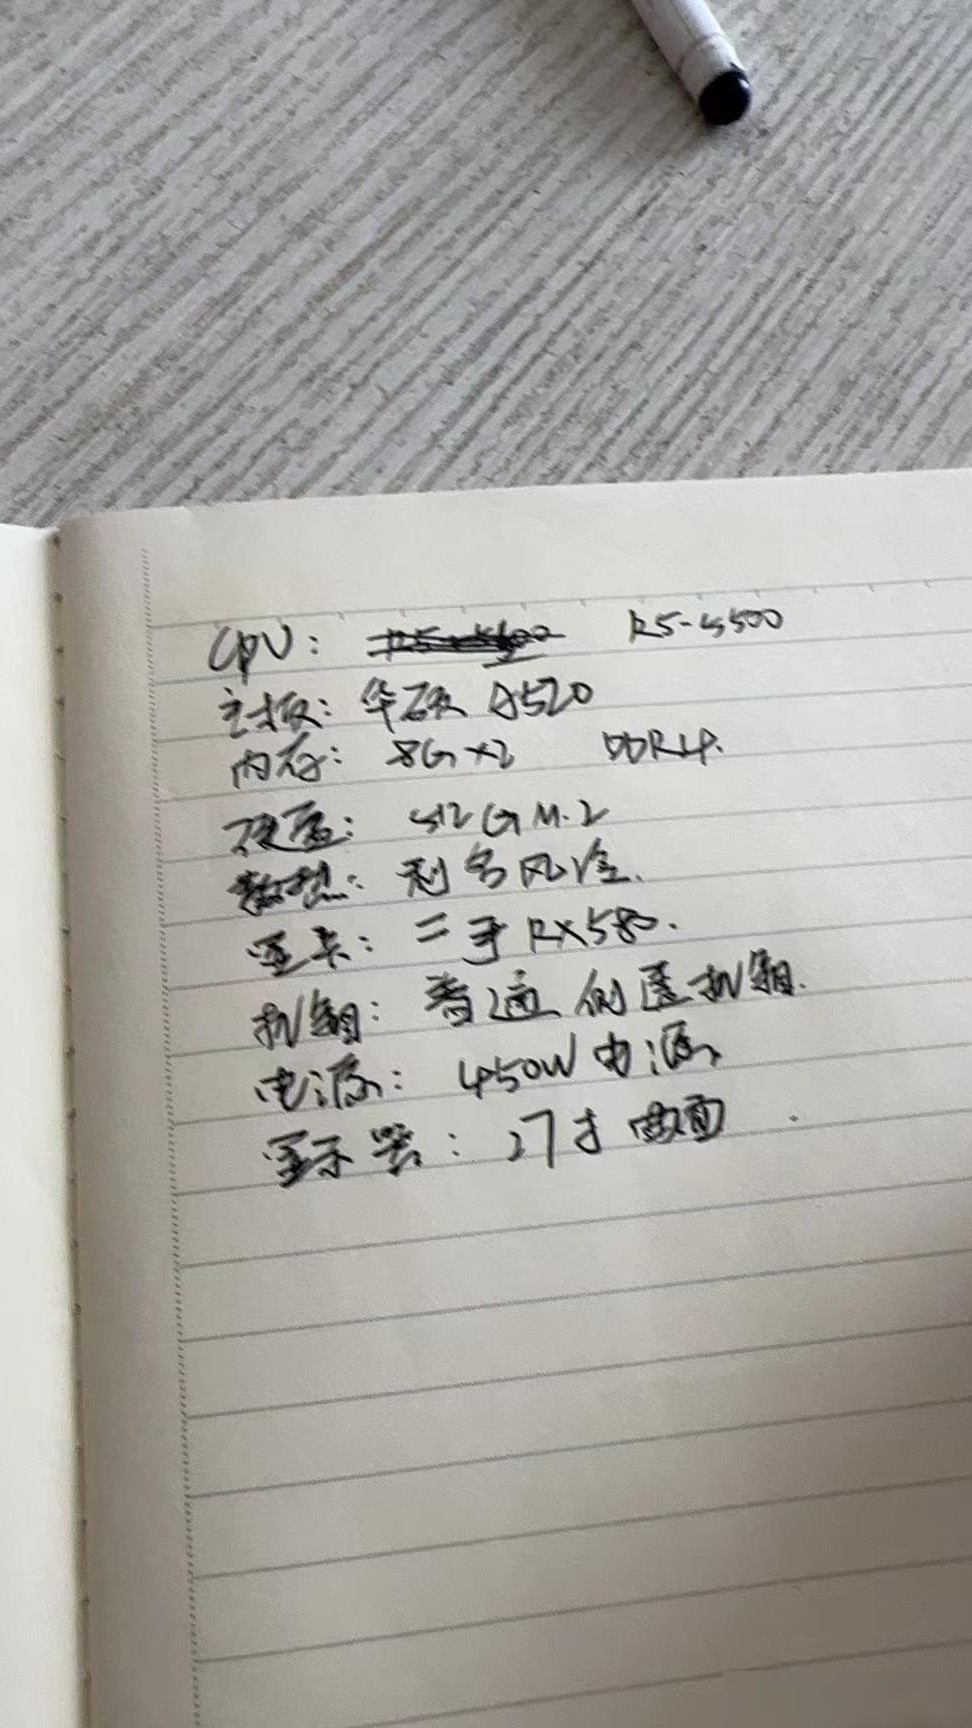 CPU: R5-5500
主板: 华硕 A520
内存: 8G×2 DDR4.
硬盘: 512G M.2
散热: 利名风冷.
显卡: 二手 RX580.
机箱: 普通侧透机箱.
电源: 450W 电源
显示器: 27寸 曲面